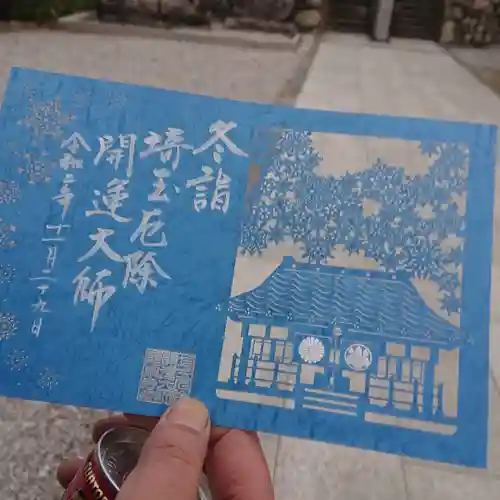 冬詣
埼玉厄除
開運大師
令和三年十一月二十九日